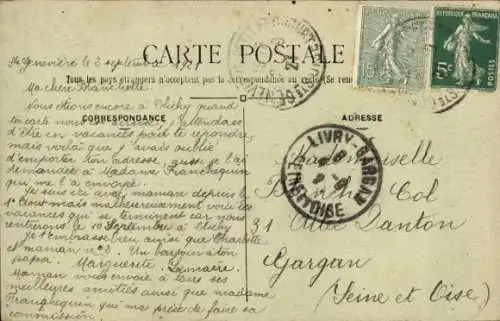 Ste Geneviève le 3 septembre 1921
CARTE POSTALE
Tous les pays étrangers n'acceptent pas la correspondance au recto (Se ren
CORRESPONDANCE
ADRESSE
RÉPUBLIQUE FRANÇAISE
15
5c
LIVRY-GARGAN
SEINE-ET-OISE
Ma chère Blanchette
Nous étions encore à Clichy quand
ta carte nous j'attendais
d'être en vacances pour te répondre
mais voilà que j'avais oublié
d'emporter ton adresse, aussi je l'ai
demandée à Madame Franchequin
qui me l'a envoyée.
Je suis ici avec maman depuis le
1er Août mais malheureusement voilà les
vacances qui se terminent car nous
rentrerons le 10 Septembre à Clichy
Je t'embrasse bien ainsi que Charlotte
et maman n°2. Un bonjour à ton
papa. Marguerite Lemaire
Maman vous envoie à tous ses
meilleures amitiés ainsi que madame
Franchequin qui me prie de faire sa
commission.
Mademoiselle
Col
31 Allée Danton
Gargan
(Seine et Oise)